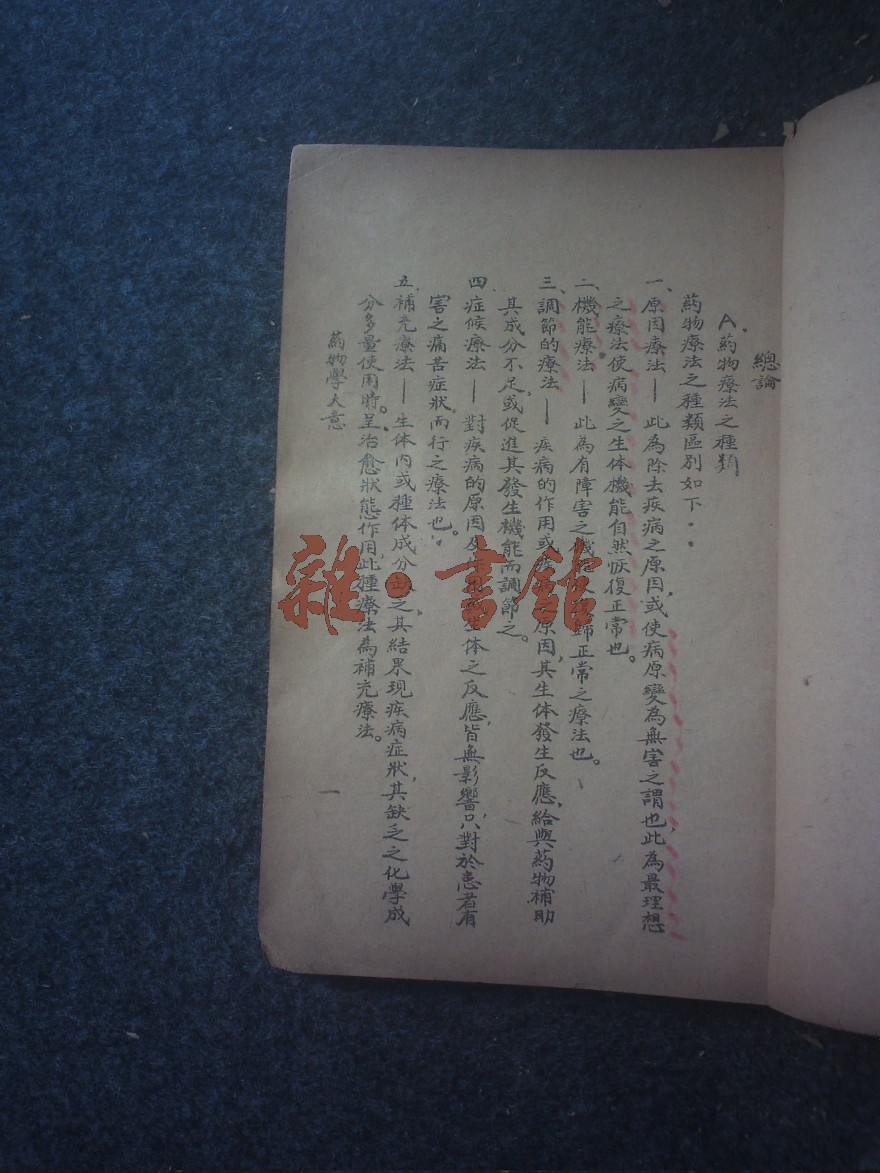 總論
A.藥物療法之種類
藥物療法之種類區別如下：
一、原因療法—此為除去疾病之原因，或使病原變為無害之謂也，此為最理想
之療法使病變之生体機能自然恢復正常也。
二、機能療法—此為有障害之機 歸正常之療法也。
三、調節的療法—疾病的作用或疾 原因，其生体發生反應，給與藥物補助
其成分不足，或促進其發生機能而調節之。
四、症候療法—對疾病的原因及 生体之反應，皆無影響，只對於患者有
害之痛苦症狀，而行之療法也。
五、補充療法—生体內或種体成分缺乏，其結果現疾病症狀，其缺乏之化學成
分多量使用時。呈治愈狀態作用，此種療法為補充療法。
藥物學大意
一
雜·書館